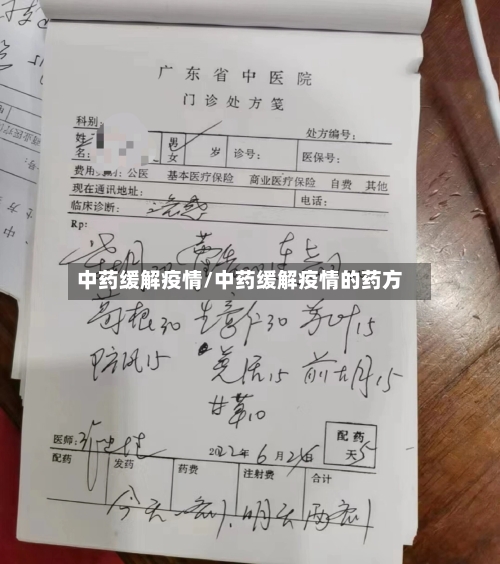 广东省中医院
门诊处方笺
科别:
处方编号:
姓名:
男
女
岁
诊号:
医保号:
费用: 公医 基本医疗保险 商业医疗保险 自费 其他
现在通讯地址:
电话:
临床诊断:
Rp:
中药缓解疫情/中药缓解疫情的药方
葛根30 生意仁30 苏叶15
防风15 羌活15 前胡15
甘草10
医师:
2022年6月
日
配药
天
配药 发药 药费 注射费 合计
今天一剂.明天两剂